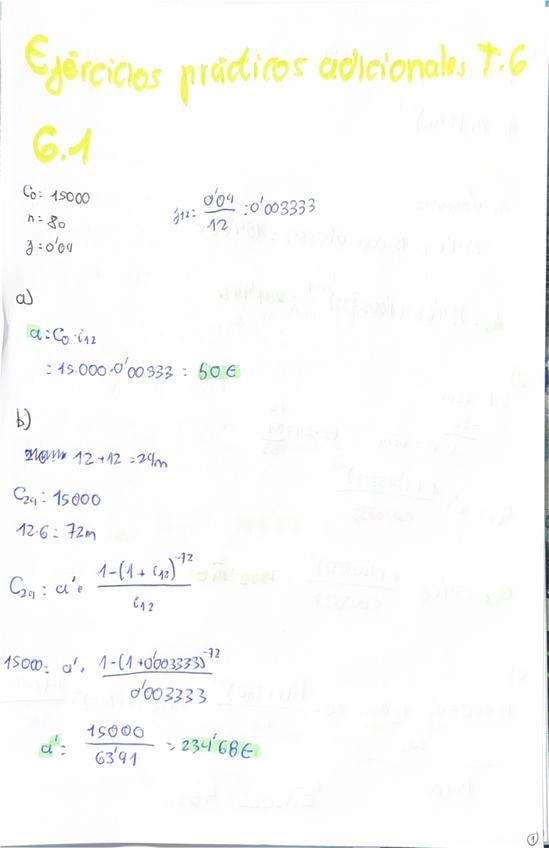 Ejercicios prácticos adicionales T.6
6.1
C0= 15000
n= 80
j= 0'04
j12= 0'04/12 = 0'003333
a)
a = C0 · i12
= 15.000 · 0'00333 = 50€
b)
12+12 = 24m
C24 = 15000
12·6 = 72m
C24 = a' · 1-(1+i12)^-72 / i12
15000 = a' · 1-(1+0'003333)^-72 / 0'003333
a' = 15000/63'91 = 234'68€
1